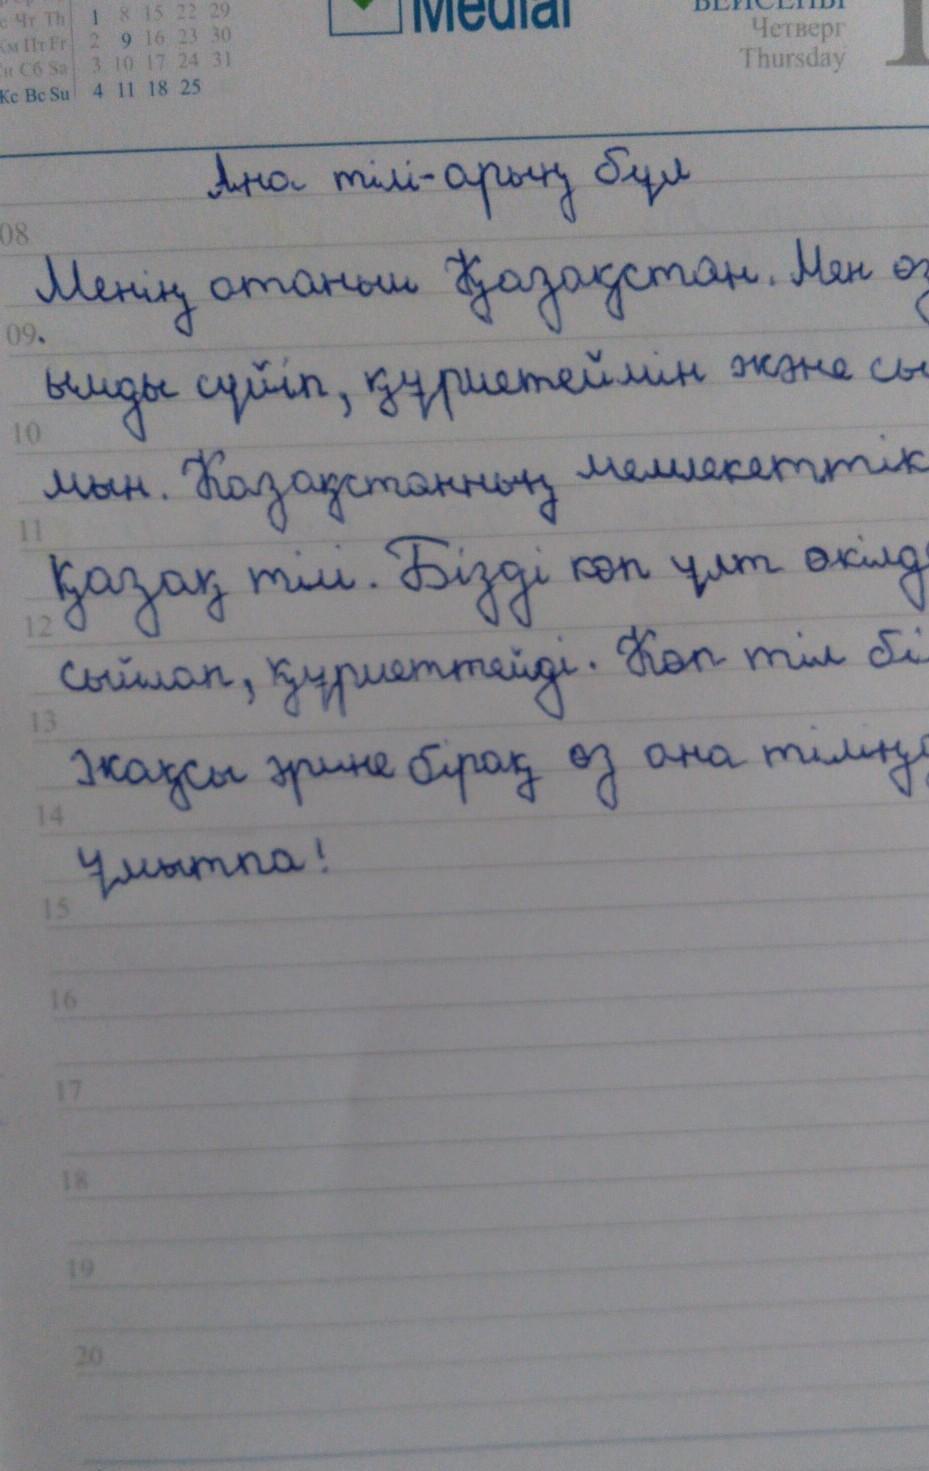 Чт Th 1 8 15 22 29
Пт Fr 2 9 16 23 30
Сб Sa 3 10 17 24 31
Жс Вс Su 4 11 18 25
Medial
БЕЙСЕНБІ
Четверг
Thursday
Ана тілі-арың бұл
08
Менің отаным Қазақстан. Мен өз
09
ымды сүйіп, құрметеймін және сы
10
мын. Қазақстанның мемлекеттік
11
Қазақ тілі. Бізді көп ұлт өкілд
12
сыйлап, құрметтейді. Көп тіл бі
13
жақсы әрине бірақ өз ана тіліңд
14
ұмытпа!
15
16
17
18
19
20